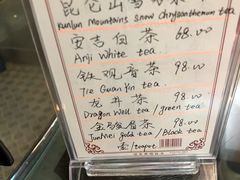 昆仑山雪菊
Kunlun Mountains snow Chrysanthemum tea
安吉白茶 68.00
Anji White tea
铁观音茶 98.00
Tie Guan Yin tea
龙井茶 98.00
Dragon Well tea / green tea
金骏眉茶 98.00
JunMei gold tea / Black tea
壶/teapot